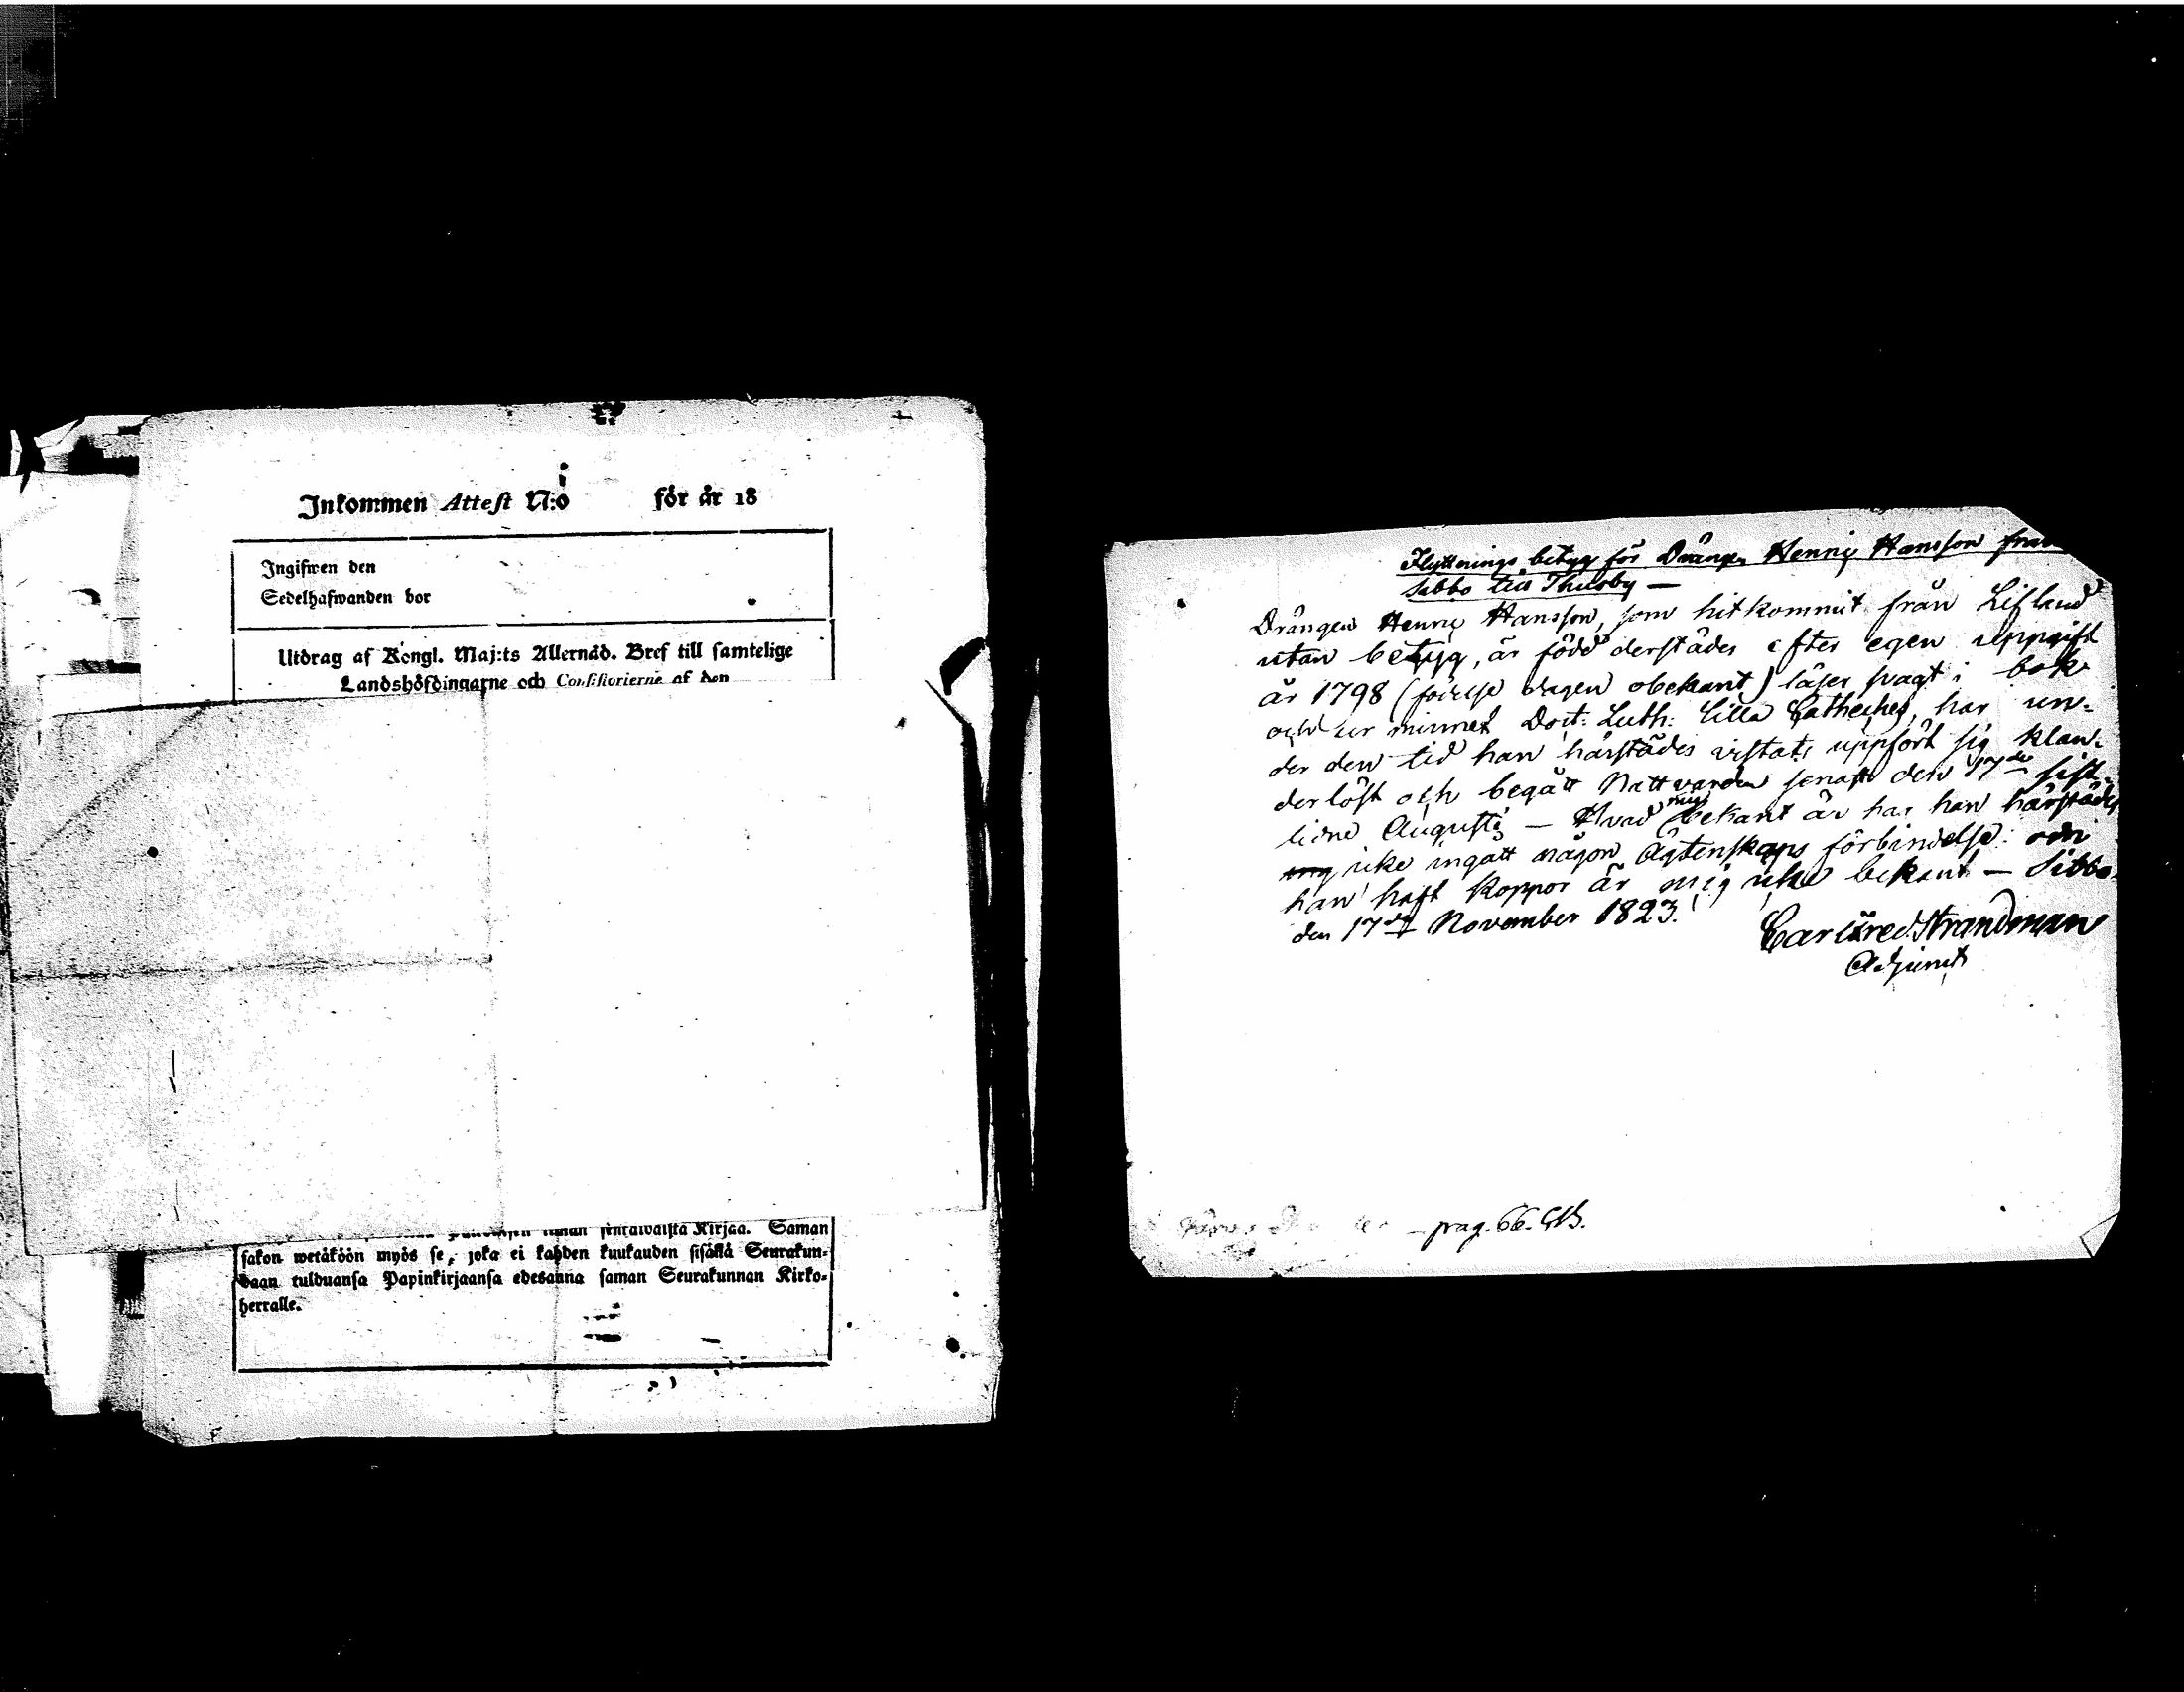 Inkommen Attest N:o för år 18
Ingifwen den
Sedelhafwanden bor
Utdrag af Kongl. Maj:ts Allernåd. Bref till samtelige
Landshöfdingarne och Consistorierne af den
sintawaista Kirjaa. Saman
sakon wetäköön myös se, joka ei kahden kuukauden sisällä Seurakun-
daan tulduansa Papinkirjaansa edesanna saman Seurakunnan Kirko-
herralle.
Flyttnings betyg för Drängen Henric Hansson från
Sibbo till Thusby —
Drängen Henric Hansson, som hitkommit från Lifland
utan betyg, är född derstädes efter egen uppgift
år 1798 (födelse dagen obekant) läser svagt i bok
och ur minnet Doct: Luth: Lilla Catheches, har un-
der den tid han härstädes vistats uppfört sig klan-
derlöst och begått Nattvarden senast den 17de sist-
lidne Augusti — Hvad mig bekant är har han härstädes
icke ingått någon Ägtenskaps förbindelse: om
han haft Koppor är mig icke bekant — Sibbo
den 17de November 1823.
Carl Fred. Strandman
Adjunct
pag. 66.